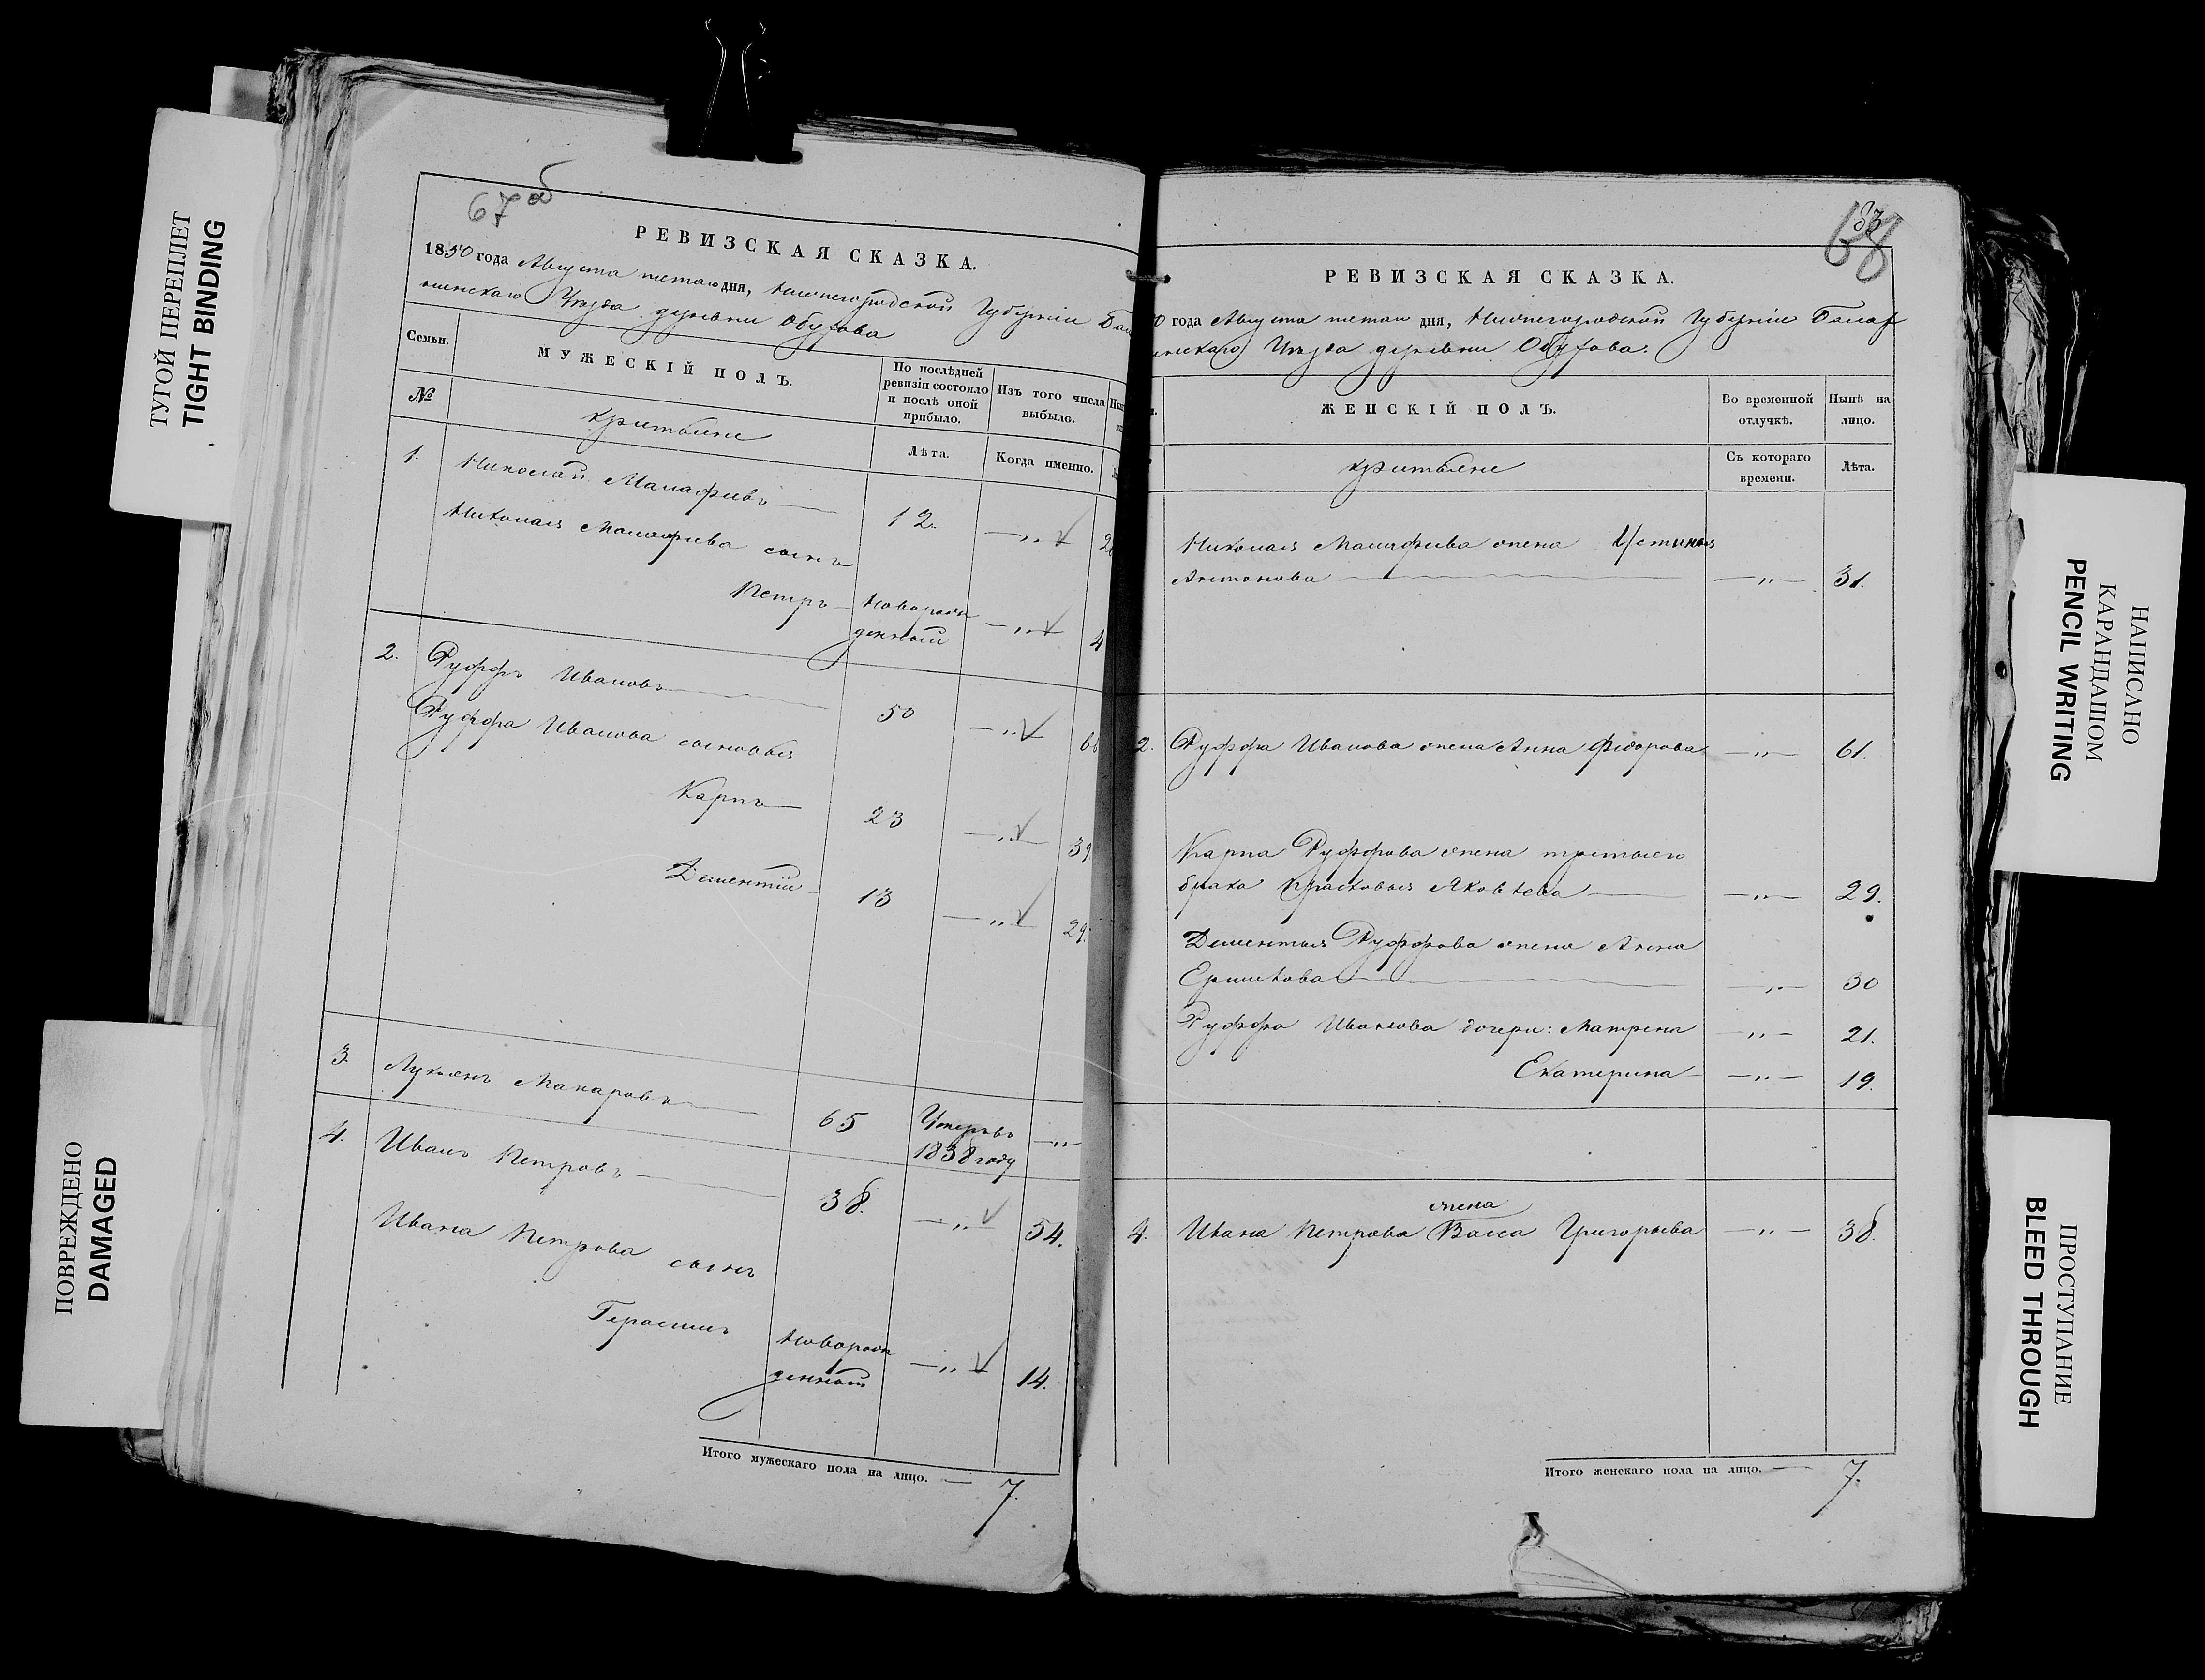 ТУГОЙ ПЕРЕПЛЕТ
TIGHT BINDING
ПОВРЕЖДЕНО
DAMAGED
67 об
РЕВИЗСКАЯ СКАЗКА.
1850 года Августа пятаго дня, Нижегородской Губерніи Бала
хнинскаго Уѣзда деревни Обухова
Семьи.
МУЖЕСКІЙ ПОЛЪ.
По послѣдней ревизіи состояло и послѣ оной прибыло.
Изъ того числа выбыло.
№
Крестьяне
Лѣта.
Когда именно.
1. Николай Малафѣевъ 12. —„—
Николая Малафѣева сынъ
Петръ новорож
денный —„— 4.
2. Руффъ Ивановъ 50 —„— 66
Руффа Иванова сыновья
Карпъ 23 —„— 39
Дементій 13 —„— 29.
3. Лукьянъ Макаровъ 65 Умеръ въ
1838 году —„—
4. Иванъ Петровъ 38. —„— 54.
Ивана Петрова сынъ
Герасимъ новорож
денный —„— 14.
Итого мужескаго пола на лицо. — 7.
68
РЕВИЗСКАЯ СКАЗКА.
0 года Августа пятаго дня, Нижегородской Губерніи Балах
нинскаго Уѣзда деревни Обухова.
ЖЕНСКІЙ ПОЛЪ.
Во временной отлучкѣ.
Нынѣ на лицо.
Крестьяне
Съ котораго времени.
Лѣта.
Николая Малафѣева жена Устинья
Антонова —„— 31.
2. Руффа Иванова жена Анна Федорова —„— 61.
Карпа Руффова жена третьяго
брака Прасковья Яковлева —„— 29.
Дементья Руффова жена Анна
Ермилова —„— 30
Руффа Иванова дочери: Матрена —„— 21.
Екатерина —„— 19.
жена
4. Ивана Петрова Васса Григорьева —„— 38.
Итого женскаго пола на лицо. — 7.
НАПИСАНО
КАРАНДАШОМ
PENCIL WRITING
ПРОСТУПАНИЕ
BLEED THROUGH